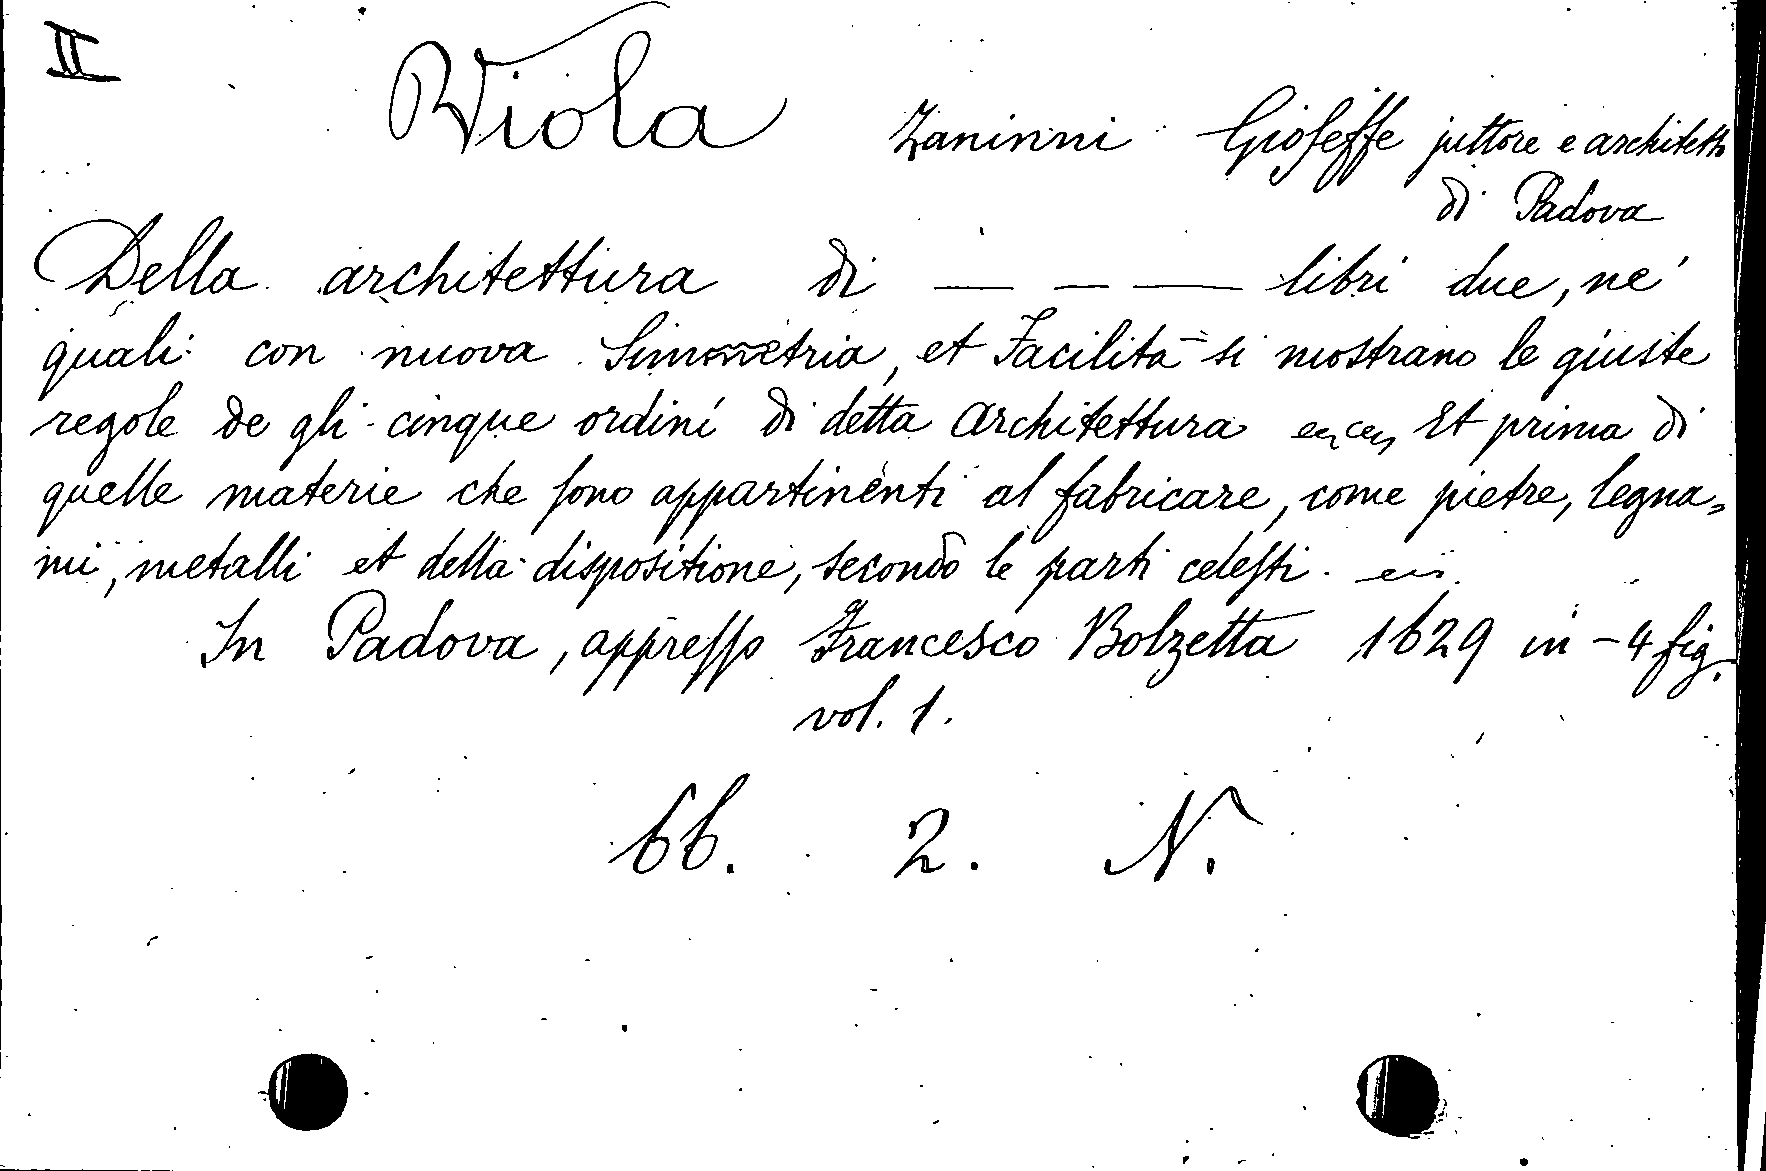 II
Viola Zaninni Gioseffe pittore e architetto
di Padova
Della architettura di — — — libri due, ne'
quali con nuova Simmetria, et Facilità si mostrano le giuste
regole de gli cinque ordini di detta Architettura Et prima di
quelle materie che sono appartinenti al fabricare, come pietre, legna=
mi, metalli et della dispositione, secondo le parti celesti.
In Padova, appresso Francesco Bolzetta 1629 in-4 fig.
vol. 1.
66. 2. N.